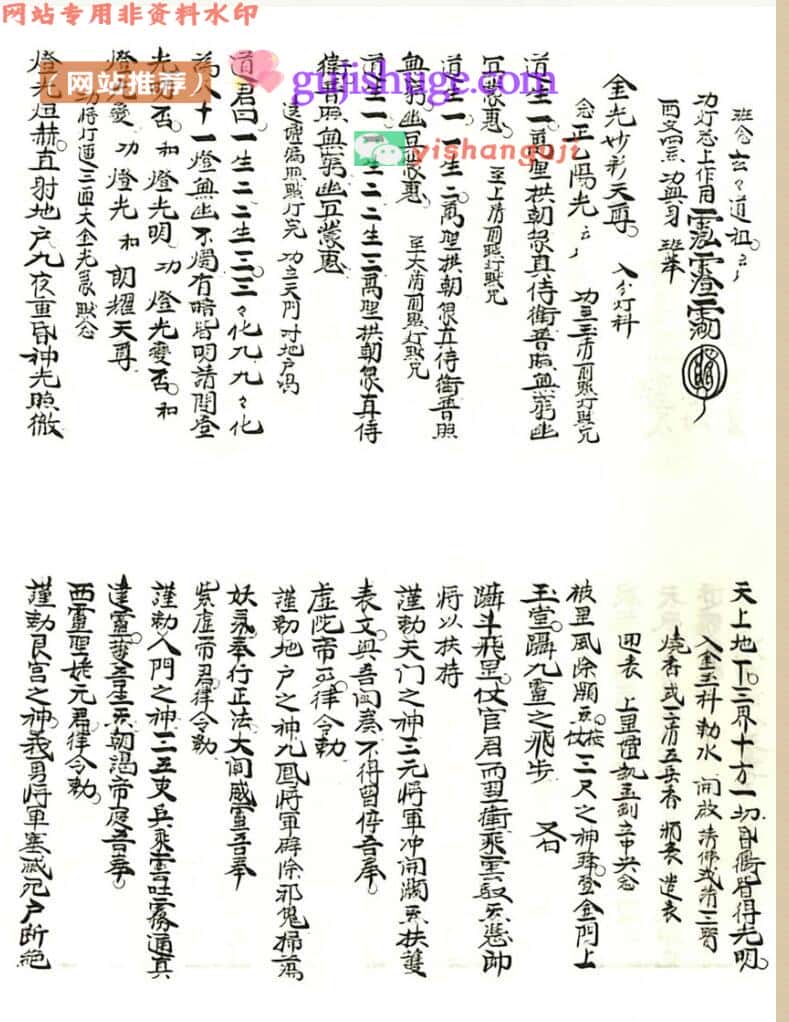 网站专用非资料水印
(网站推荐)
gujishuge.com
yishanguji
班念玄々道祖。
功灯花上作用
西文
金光妙彩天尊 入分灯科
念正乙陽光 功立玉清前照灯默咒
道生一。萬聖拱朝衆真侍衛普照無窮幽
冥蒙惠。 至上清前照灯默咒
道生一。一生二。萬聖拱朝衆真侍衛普照
無窮幽冥蒙惠。 至太清前照灯默咒
道生一。一生二二生三萬聖拱朝衆真侍
衛普照無窮幽冥蒙惠
遶壇循照灯完 功立天門对地户
道君曰一生二二生三。三々化九九々化
為八十一燈無幽不燭有暗皆明請問登
光明否。和燈光明。功燈光变否。和
燈光变 功燈光 和朗耀天尊
功将灯道三面大金光篆默念
燈光烜赫。直射地户九夜重昏神光照徹
天上地下。三界十方一切昏衢皆得光明。
入金玉科勅水 開啟請佛或請三寶
燒香或二清五岳香 頒表遣表
迎表 上罡壇執玉到立中央念
被罡风除頒炁。仗按三尺之神鋒。登金門上
玉堂。躡九靈之飛步 又右
躡斗飛罡。仗官君而罡衛乘雲馭炁慈帥
将以扶持
謹勅天门之神三元将軍冲開頒炁扶護
表文與吾闻奏不得留停吾奉
虛陀帝君。律令勅
謹勅地户之神九鳳将軍辟除邪鬼掃蕩
妖氛。奉行正法大闻威靈吾奉
紫虛帝君。律令勅
謹勅人門之神三五吏兵乘雲吐霧通真
達靈。 朝謁帝庭吾奉。
西靈聖姥元君。律令勅。
謹勅艮宫之神。義勇将軍塞滅死户断絶